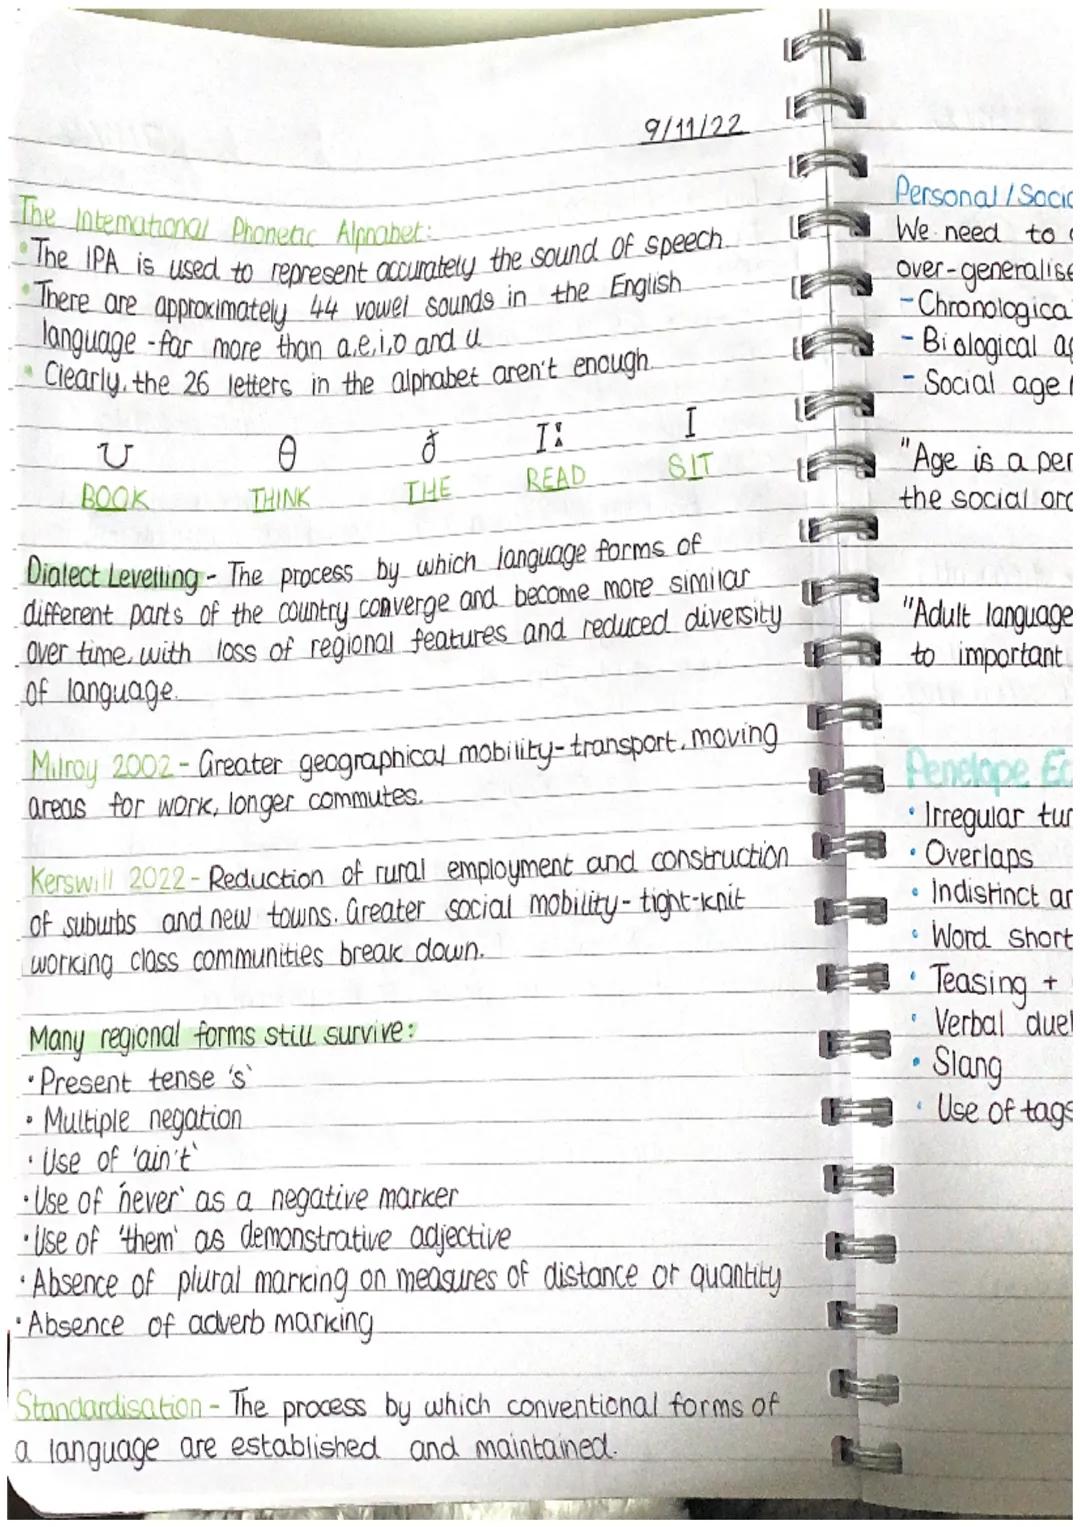 9/11/22
The International Phonetic Alphabet:
• The IPA is used to represent accurately the sound of speech.
• There are approximately 44 vowel sounds in the English
language - far more than a,e,i,o and u
• Clearly, the 26 letters in the alphabet aren't enough.
ʊ θ ð I: I
BOOK THINK THE READ SIT
Dialect Levelling - The process by which language forms of
different parts of the country converge and become more similar
over time, with loss of regional features and reduced diversity
of language.
Milroy 2002 - Greater geographical mobility - transport, moving
areas for work, longer commutes.
Kerswill 2022 - Reduction of rural employment and construction
of suburbs and new towns. Greater social mobility - tight-knit
working class communities break down.
Many regional forms still survive:
• Present tense 's'
• Multiple negation
• Use of 'ain't'
• Use of 'never' as a negative marker
• Use of 'them' as demonstrative adjective
• Absence of plural marking on measures of distance or quantity
• Absence of adverb marking
Standardisation - The process by which conventional forms of
a language are established and maintained.
Personal / Socia
We need to
over-generalise
- Chronologica
- Biological ag
- Social age
"Age is a per
the social ord
"Adult language
to important
Penelope Ec
• Irregular tur
• Overlaps
• Indistinct ar
• Word short
• Teasing +
• Verbal duel
• Slang
• Use of tags